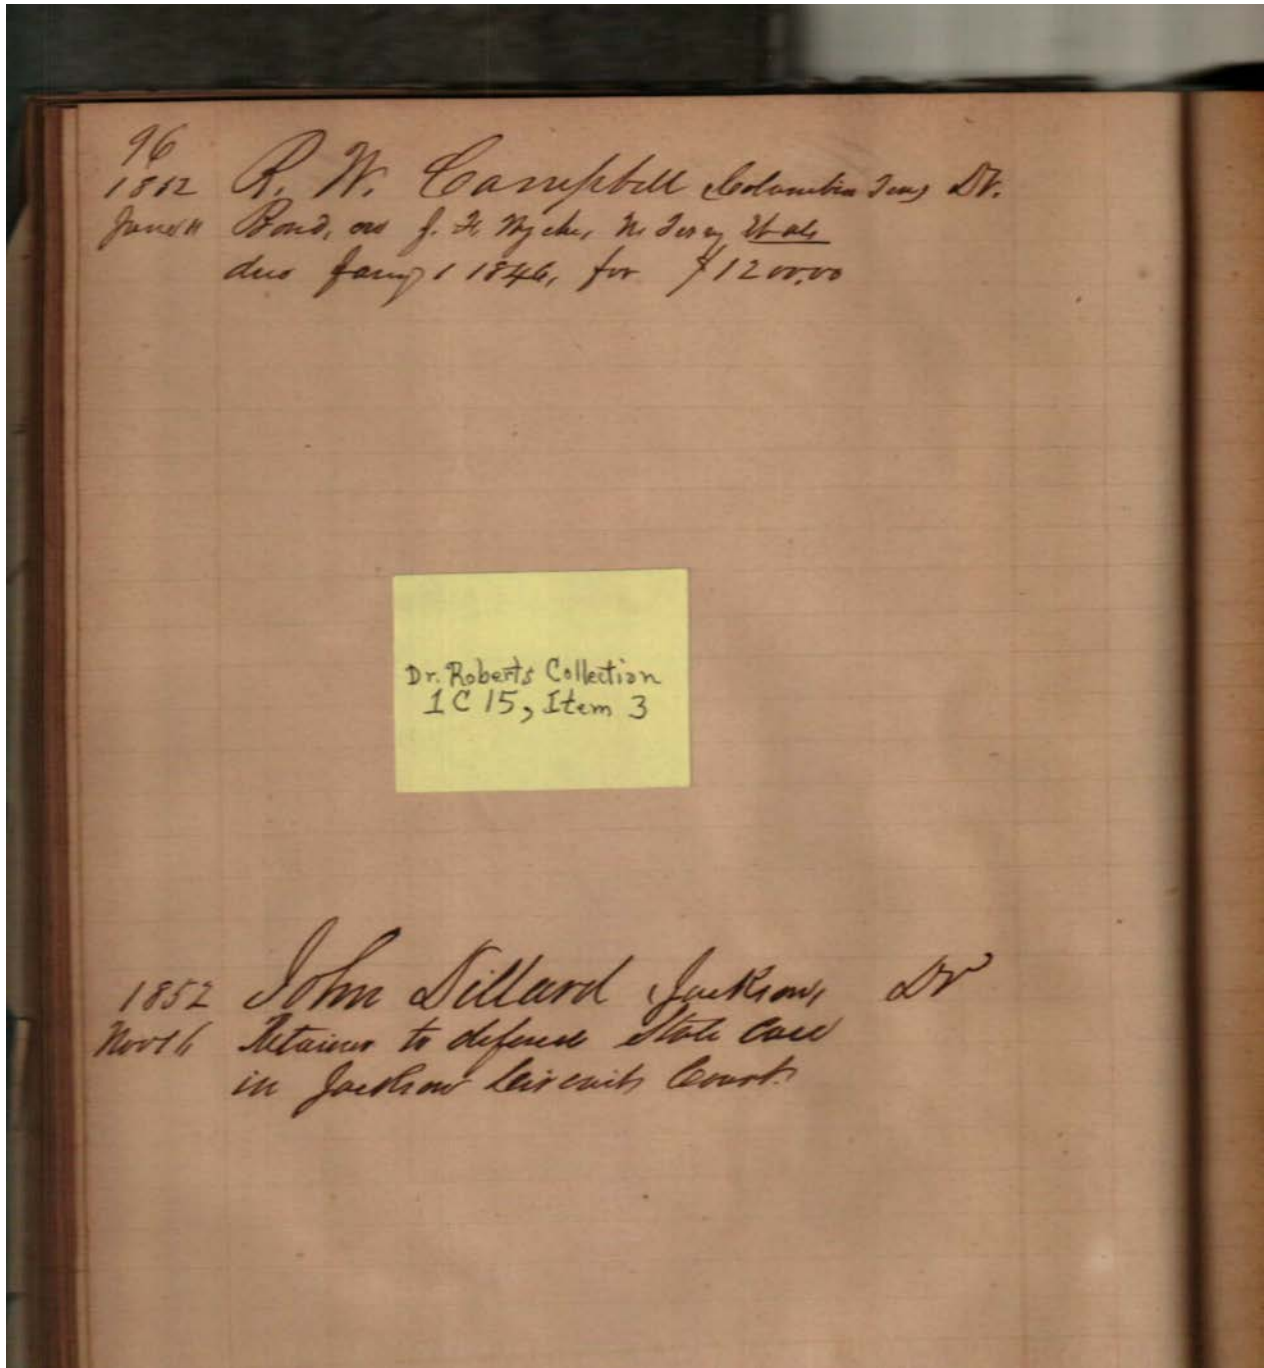 96
1852 R. W. Campbell Columbia Tenn Dr.
Bond, on J. H. N. Terry et als
due Jany 1 1846, for $1200.00
Dr. Roberts Collection
1C 15, Item 3
1852 John Dillard Jackson, Dr
Novr 6 Retainer to defend State Case
in Jackson Circuit Court.